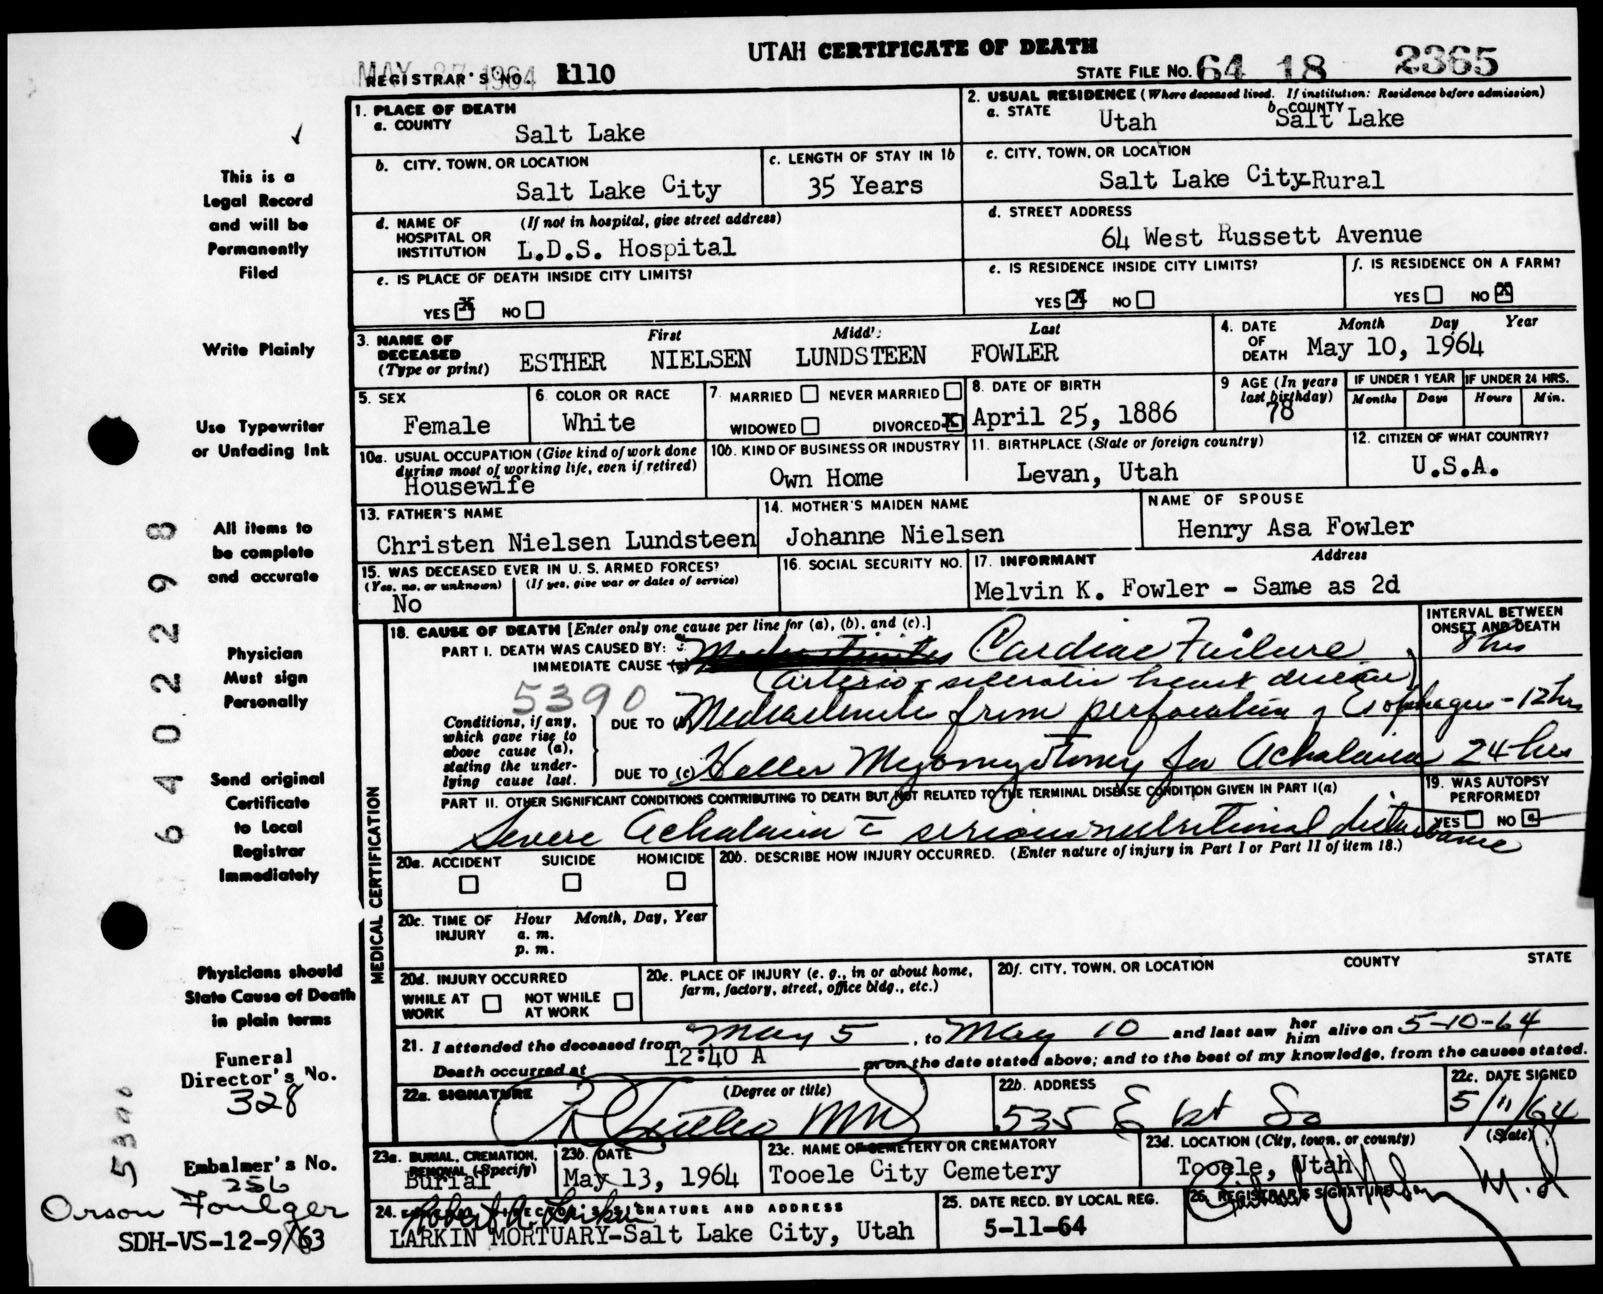 UTAH CERTIFICATE OF DEATH
MAY 27 1964
REGISTRAR'S NO. 1110
STATE FILE NO. 64 18 2365
1. PLACE OF DEATH
a. COUNTY
Salt Lake
2. USUAL RESIDENCE (Where deceased lived. If institution: Residence before admission)
a. STATE Utah b. COUNTY Salt Lake
b. CITY, TOWN, OR LOCATION
Salt Lake City
c. LENGTH OF STAY IN 1b
35 Years
c. CITY, TOWN, OR LOCATION
Salt Lake City-Rural
d. NAME OF HOSPITAL OR INSTITUTION (If not in hospital, give street address)
L.D.S. Hospital
d. STREET ADDRESS
64 West Russett Avenue
e. IS PLACE OF DEATH INSIDE CITY LIMITS?
YES X NO
e. IS RESIDENCE INSIDE CITY LIMITS?
YES X NO
f. IS RESIDENCE ON A FARM?
YES NO X
3. NAME OF DECEASED (Type or print)
First Middl: Last
ESTHER NIELSEN LUNDSTEEN FOWLER
4. DATE OF DEATH
Month Day Year
May 10, 1964
5. SEX
Female
6. COLOR OR RACE
White
7. MARRIED NEVER MARRIED
WIDOWED DIVORCED X
8. DATE OF BIRTH
April 25, 1886
9 AGE (In years last birthday)
78
IF UNDER 1 YEAR
Months Days
IF UNDER 24 HRS.
Hours Min.
10a. USUAL OCCUPATION (Give kind of work done during most of working life, even if retired)
Housewife
10b. KIND OF BUSINESS OR INDUSTRY
Own Home
11. BIRTHPLACE (State or foreign country)
Levan, Utah
12. CITIZEN OF WHAT COUNTRY?
U.S.A.
13. FATHER'S NAME
Christen Nielsen Lundsteen
14. MOTHER'S MAIDEN NAME
Johanne Nielsen
NAME OF SPOUSE
Henry Asa Fowler
15. WAS DECEASED EVER IN U. S. ARMED FORCES?
(Yes, no, or unknown) (If yes, give war or dates of service)
No
16. SOCIAL SECURITY NO.
17. INFORMANT Address
Melvin K. Fowler - Same as 2d
MEDICAL CERTIFICATION
18. CAUSE OF DEATH [Enter only one cause per line for (a), (b), and (c).]
INTERVAL BETWEEN ONSET AND DEATH
PART I. DEATH WAS CAUSED BY:
IMMEDIATE CAUSE (a) Cardiac Failure 8 hrs
(arterio-sclerotic heart disease)
5390
Conditions, if any, which gave rise to above cause (a), stating the underlying cause last.
DUE TO (b) Mediastinitis from perforation of Esophagus - 12 hrs
DUE TO (c) Heller Myomyotomy for Achalasia 24 hrs
PART II. OTHER SIGNIFICANT CONDITIONS CONTRIBUTING TO DEATH BUT NOT RELATED TO THE TERMINAL DISEASE CONDITION GIVEN IN PART I(a)
Severe Achalasia c serious nutritional disturbance
19. WAS AUTOPSY PERFORMED?
YES NO
20a. ACCIDENT SUICIDE HOMICIDE
20b. DESCRIBE HOW INJURY OCCURRED. (Enter nature of injury in Part I or Part II of item 18.)
20c. TIME OF INJURY
Hour Month, Day, Year
a. m.
p. m.
20d. INJURY OCCURRED
WHILE AT WORK NOT WHILE AT WORK
20e. PLACE OF INJURY (e. g., in or about home, farm, factory, street, office bldg., etc.)
20f. CITY, TOWN, OR LOCATION COUNTY STATE
21. I attended the deceased from May 5, to May 10 and last saw her him alive on 5-10-64
Death occurred at 12:40 A m on the date stated above; and to the best of my knowledge, from the causes stated.
22a. SIGNATURE (Degree or title)
MD
22b. ADDRESS
535 E 1st So
22c. DATE SIGNED
5/11/64
23a. BURIAL, CREMATION, REMOVAL (Specify)
Burial
23b. DATE
May 13, 1964
23c. NAME OF CEMETERY OR CREMATORY
Tooele City Cemetery
23d. LOCATION (City, town, or county) (State)
Tooele, Utah
24. SIGNATURE AND ADDRESS
Robert A. Larkin
LARKIN MORTUARY-Salt Lake City, Utah
25. DATE RECD. BY LOCAL REG.
5-11-64
26. REGISTRAR'S SIGNATURE
M.D.
This is a
Legal Record
and will be
Permanently
Filed
Write Plainly
Use Typewriter
or Unfading Ink
All items to
be complete
and accurate
Physician
Must sign
Personally
Send original
Certificate
to Local
Registrar
Immediately
Physicians should
State Cause of Death
in plain terms
Funeral
Director's No.
328
Embalmer's No.
256
Orson Foulger
SDH-VS-12-9/63
64022298
5390